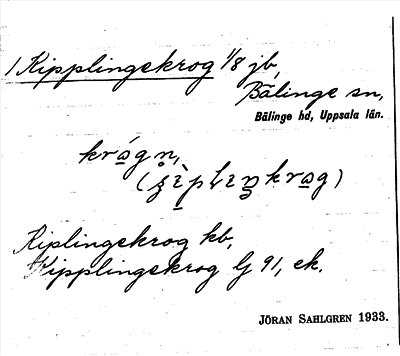 1 Kipplingekrog 1/8 jb,
Bälinge sn,
Bälinge hd, Uppsala län.
krǻgn,
Kiplingekrog kb,
Kipplingekrog G 91, ek.
JÖRAN SAHLGREN 1933.